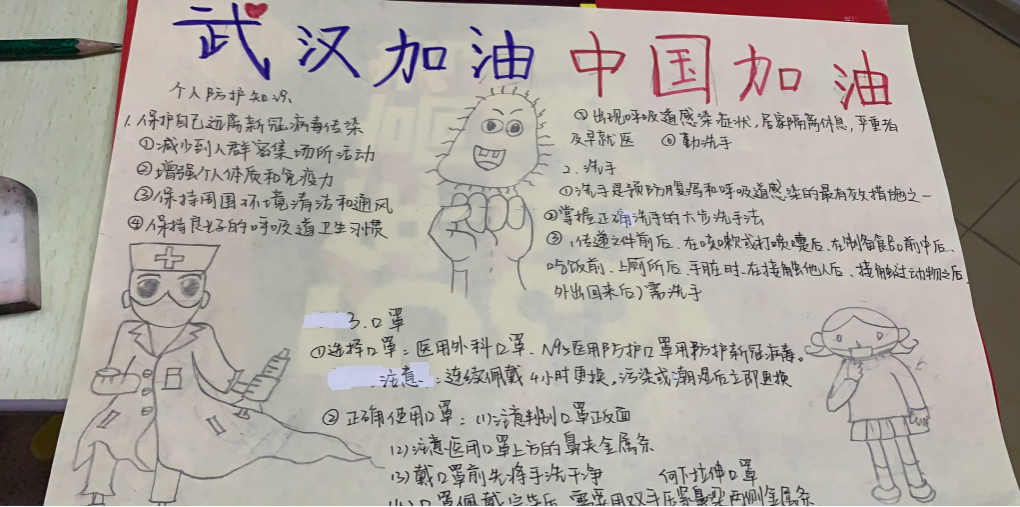 武汉加油 中国加油
个人防护知识
1. 保护自己远离新冠病毒传染
①减少到人群密集场所活动
②增强个人体质和免疫力
③保持周围环境清洁和通风
④保持良好的呼吸道卫生习惯
⑤出现呼吸道感染症状,居家隔离休息,严重者
及早就医 ⑥勤洗手
2. 洗手
①洗手是预防腹泻和呼吸道感染的最有效措施之一
②掌握正确洗手的六步洗手法
③(传递文件前后、在咳嗽或打喷嚏后、在制备食品前中后、
吃饭前、上厕所后、手脏时、在接触他人后、接触过动物之后、
外出回来后)需洗手
3. 口罩
①选择口罩:医用外科口罩、N95医用防护口罩用防护新冠病毒。
注意:连续佩戴4小时更换,污染或潮湿后立即更换
②正确使用口罩:(1)注意判别口罩正面
(2)注意医用口罩上方的鼻夹金属条
(3)戴口罩前先将手洗干净 向下拉伸口罩
(4)口罩佩戴完毕后,需要用双手压紧鼻梁两侧金属条